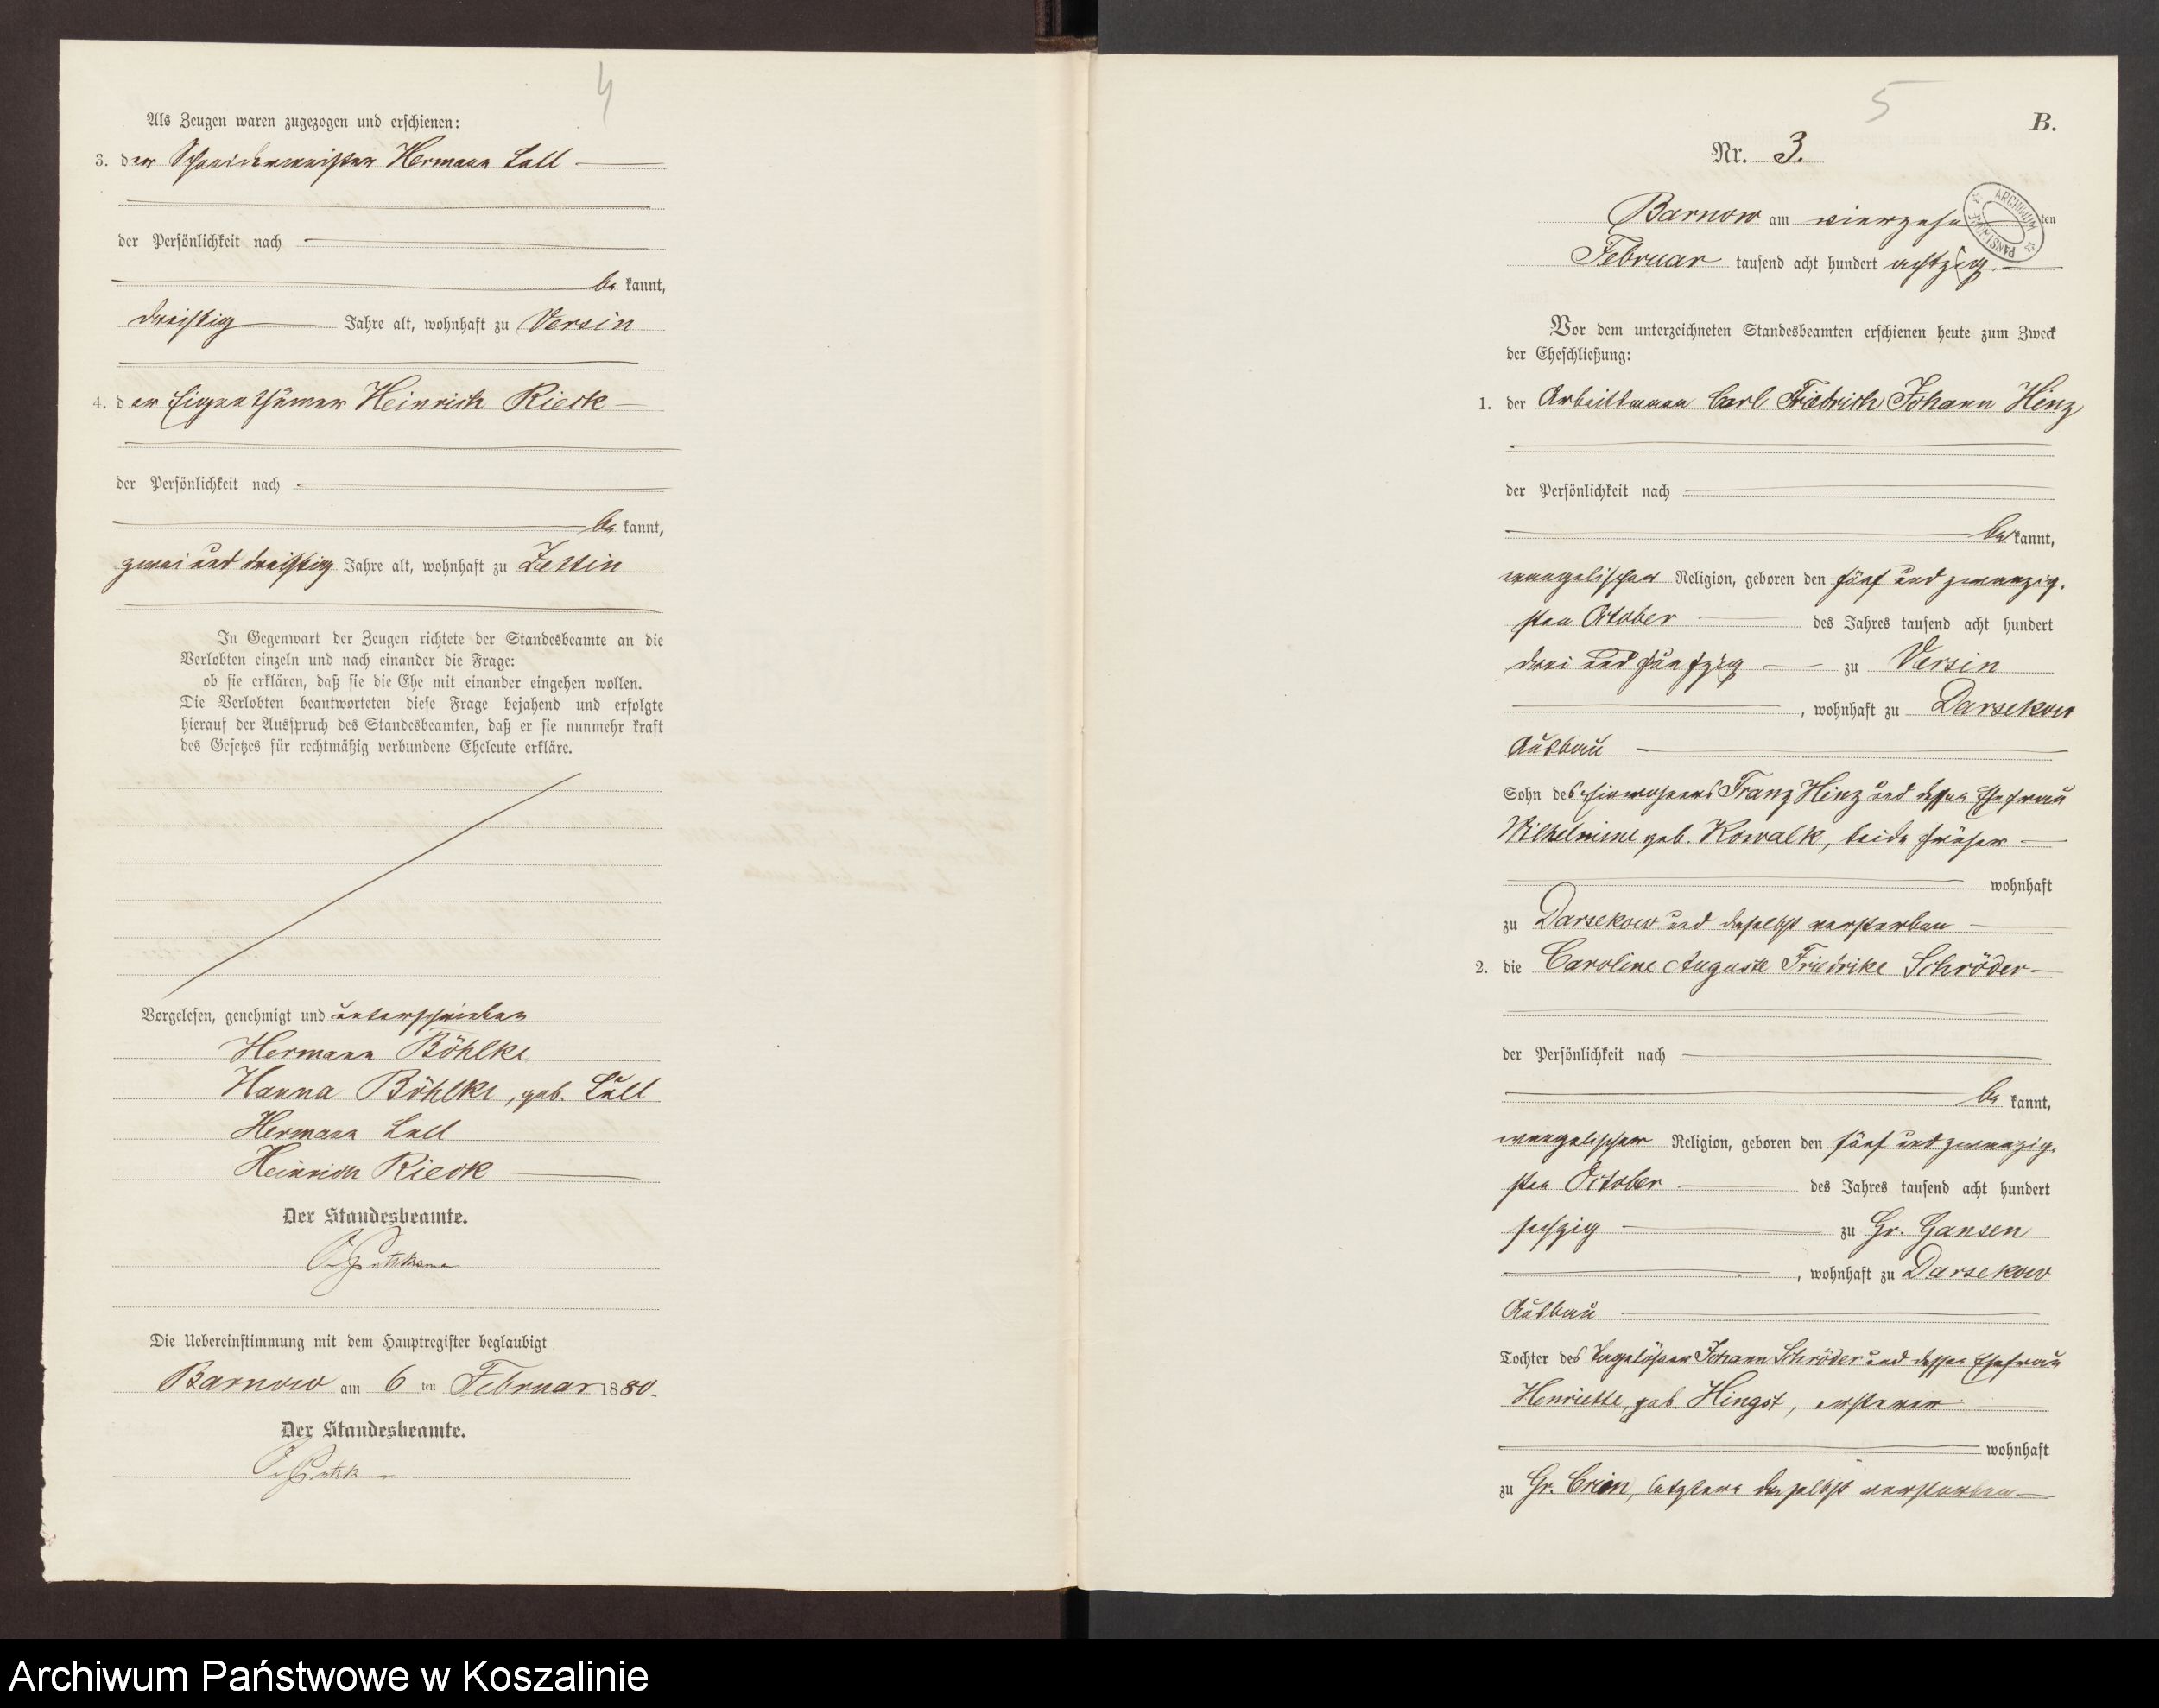 4
Als Zeugen waren zugezogen und erschienen:
3. der Schneidermeister Hermann Lüll
der Persönlichkeit nach
be kannt,
dreißig Jahre alt, wohnhaft zu Versin
4. der Eigenthümer Heinrich Rieck
der Persönlichkeit nach
be kannt,
zwei und dreißig Jahre alt, wohnhaft zu Zettin
In Gegenwart der Zeugen richtete der Standesbeamte an die
Verlobten einzeln und nach einander die Frage:
ob sie erklären, daß sie die Ehe mit einander eingehen wollen.
Die Verlobten beantworteten diese Frage bejahend und erfolgte
hierauf der Ausspruch des Standesbeamten, daß er sie nunmehr kraft
des Gesetzes für rechtmäßig verbundene Eheleute erkläre.
Vorgelesen, genehmigt und unterschrieben
Hermann Böhlke
Hanna Böhlke, geb. Lüll
Hermann Lüll
Heinrich Rieck
Der Standesbeamte.
Puttkamer
Die Uebereinstimmung mit dem Hauptregister beglaubigt
Barnow am 6 ten Februar 1880.
Der Standesbeamte.
5
B.
Nr. 3.
Barnow am vierzehn ten
Februar tausend acht hundert achtzig.
ARCHIWUM PAŃSTWOWE
Vor dem unterzeichneten Standesbeamten erschienen heute zum Zweck
der Eheschließung:
1. der Arbeitsmann Carl Friedrich Johann Hinz
der Persönlichkeit nach
be kannt,
evangelischer Religion, geboren den fünf und zwanzig-
sten October des Jahres tausend acht hundert
drei und fünfzig zu Versin
, wohnhaft zu Darsekow
Ausbau
Sohn des Einwohners Franz Hinz und dessen Ehefrau
Wilhelmine geb. Kowalk, beide früher
wohnhaft
zu Darsekow und daselbst verstorben
2. die Caroline Auguste Friedrike Schröder
der Persönlichkeit nach
be kannt,
evangelischer Religion, geboren den fünf und zwanzig-
sten October des Jahres tausend acht hundert
sechzig zu Gr. Gansen
, wohnhaft zu Darsekow
Ausbau
Tochter des Tagelöhner Johann Schröder und dessen Ehefrau
Henriette, geb. Hingst, ersterer
wohnhaft
zu Gr. Crien, letztere daselbst verstorben
Archiwum Państwowe w Koszalinie